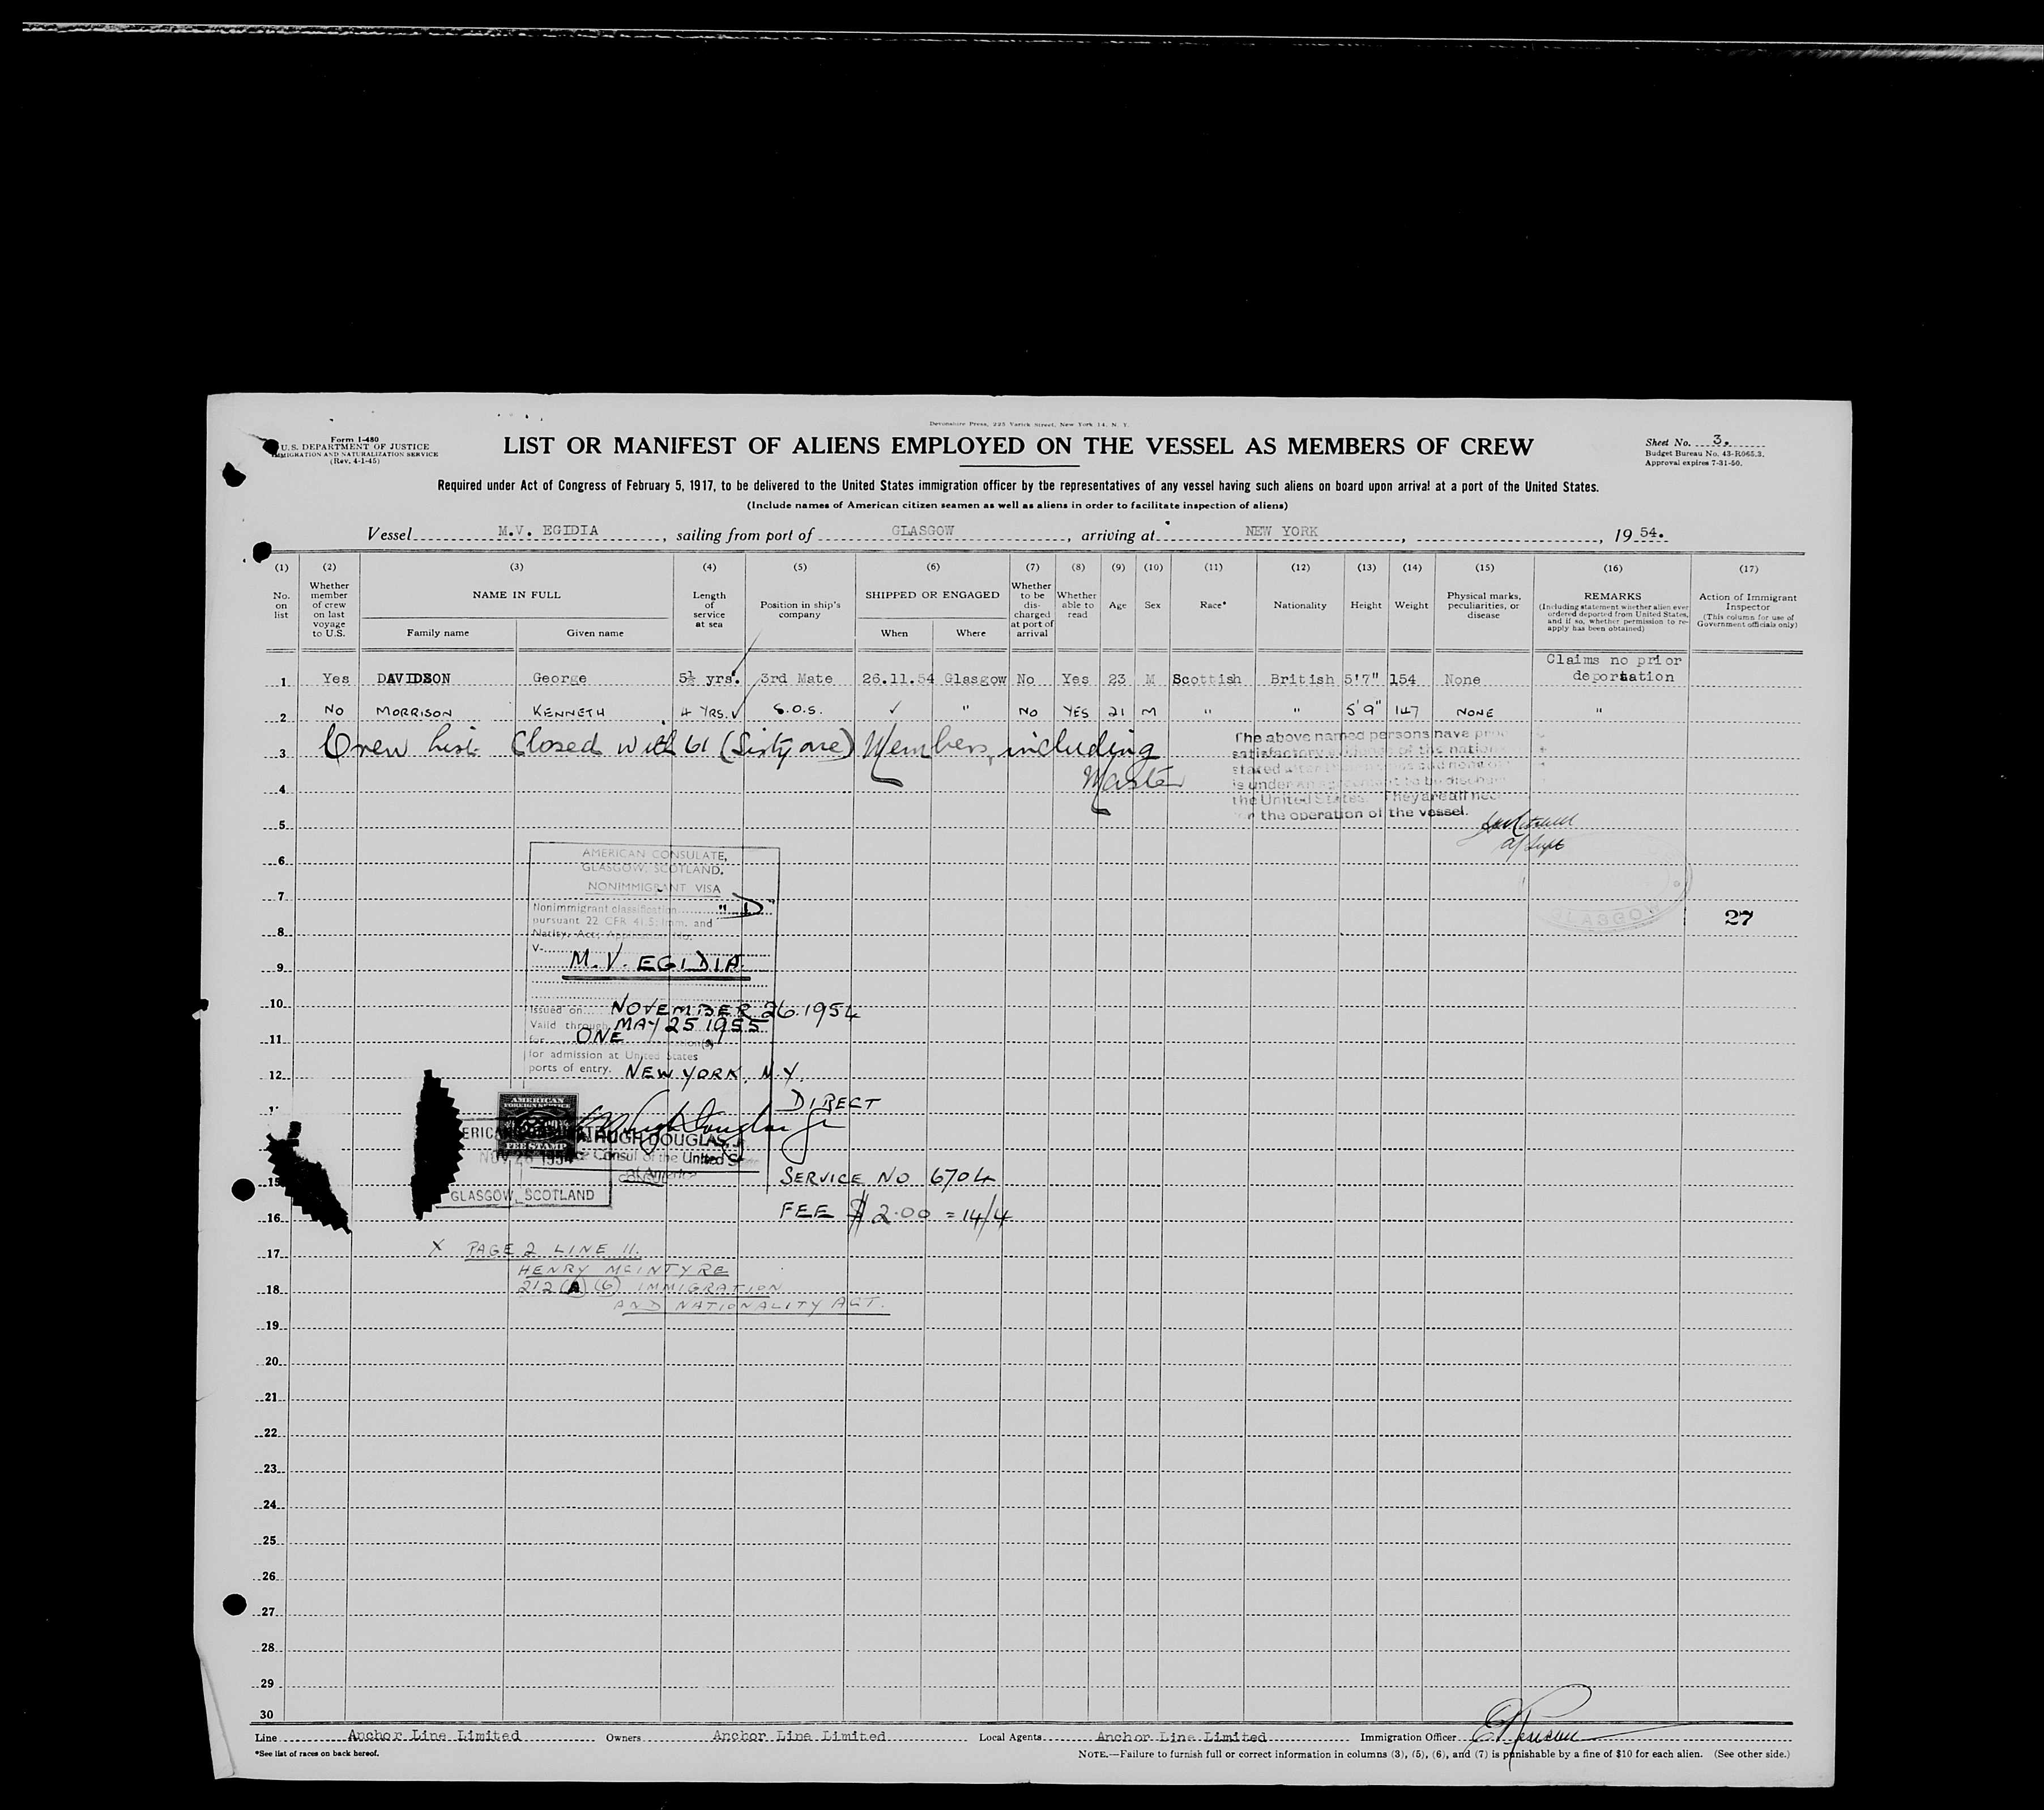 Devonshire Press, 225 Varick Street, New York 14, N. Y.
Form I-480
U.S. DEPARTMENT OF JUSTICE
IMMIGRATION AND NATURALIZATION SERVICE
(Rev. 4-1-45)
LIST OR MANIFEST OF ALIENS EMPLOYED ON THE VESSEL AS MEMBERS OF CREW
Sheet No. 3.
Budget Bureau No. 43-R065.3.
Approval expires 7-31-50.
Required under Act of Congress of February 5, 1917, to be delivered to the United States immigration officer by the representatives of any vessel having such aliens on board upon arrival at a port of the United States.
(Include names of American citizen seamen as well as aliens in order to facilitate inspection of aliens)
Vessel M.V. EGIDIA, sailing from port of GLASGOW, arriving at NEW YORK, , 19 54.
(1) (2) (3) (4) (5) (6) (7) (8) (9) (10) (11) (12) (13) (14) (15) (16) (17)
No. on list
Whether member of crew on last voyage to U.S.
NAME IN FULL
Family name
Given name
Length of service at sea
Position in ship's company
SHIPPED OR ENGAGED
When
Where
Whether to be discharged at port of arrival
Whether able to read
Age
Sex
Race*
Nationality
Height
Weight
Physical marks, peculiarities, or disease
REMARKS
(Including statement whether alien ever ordered deported from United States, and if so, whether permission to re-apply has been obtained)
Action of Immigrant Inspector
(This column for use of Government officials only)
1 Yes DAVIDSON George 5½ yrs. 3rd Mate 26.11.54 Glasgow No Yes 23 M Scottish British 5'7" 154 None Claims no prior deportation
2 NO MORRISON KENNETH 4 YRS. ✓ S.O.S. ✓ " NO YES 21 M " " 5'9" 147 NONE "
3 Crew List Closed with 61 (Sixty one) Members, including
Master
The above named persons have
satisfactory of the nation
stated after and none
is under an to be
the United States. They are all nec
for the operation of the vessel.
4
5
6
7
8
9
10
11
12
AMERICAN CONSULATE,
GLASGOW, SCOTLAND.
NONIMMIGRANT VISA
Nonimmigrant classification "D"
pursuant 22 CFR 41.5; Imm. and
Natlty. Act; Application No.
V-
M.V. EGIDIA
Issued on NOVEMBER 26. 1954
Valid through MAY 25 1955
for ONE
for admission at United States
ports of entry. NEW YORK, N.Y.
DIRECT
GLASGOW
27
AMERICAN
FOREIGN SERVICE
FEE STAMP
HUGH DOUGLAS, J
Consul of the United S
of America
NOV 26 1954
GLASGOW, SCOTLAND
SERVICE NO 6704
FEE $ 2.00 = 14/4
15
16
17
X PAGE 2 LINE 11.
HENRY MCINTYRE
18
212 (A) (6) IMMIGRATION
AND NATIONALITY ACT.
19
20
21
22
23
24
25
26
27
28
29
30
Line Anchor Line Limited Owners Anchor Line Limited Local Agents Anchor Line Limited Immigration Officer
*See list of races on back hereof.
NOTE.—Failure to furnish full or correct information in columns (3), (5), (6), and (7) is punishable by a fine of $10 for each alien. (See other side.)